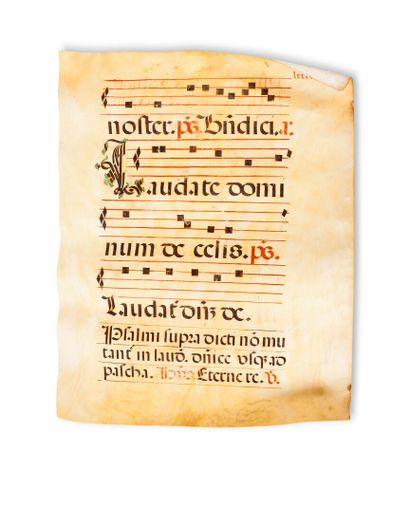 noster. ps̄. Bn̄dici. a.
Laudate domi
num de celis. ps̄.
Laudat̄ dn̄z de.
Psalmi supra dicti nō mu
tant̄ in laud̄. dn̄ice vsq̄ ad
pascha. Hȳnꝰ Eterne re. V.